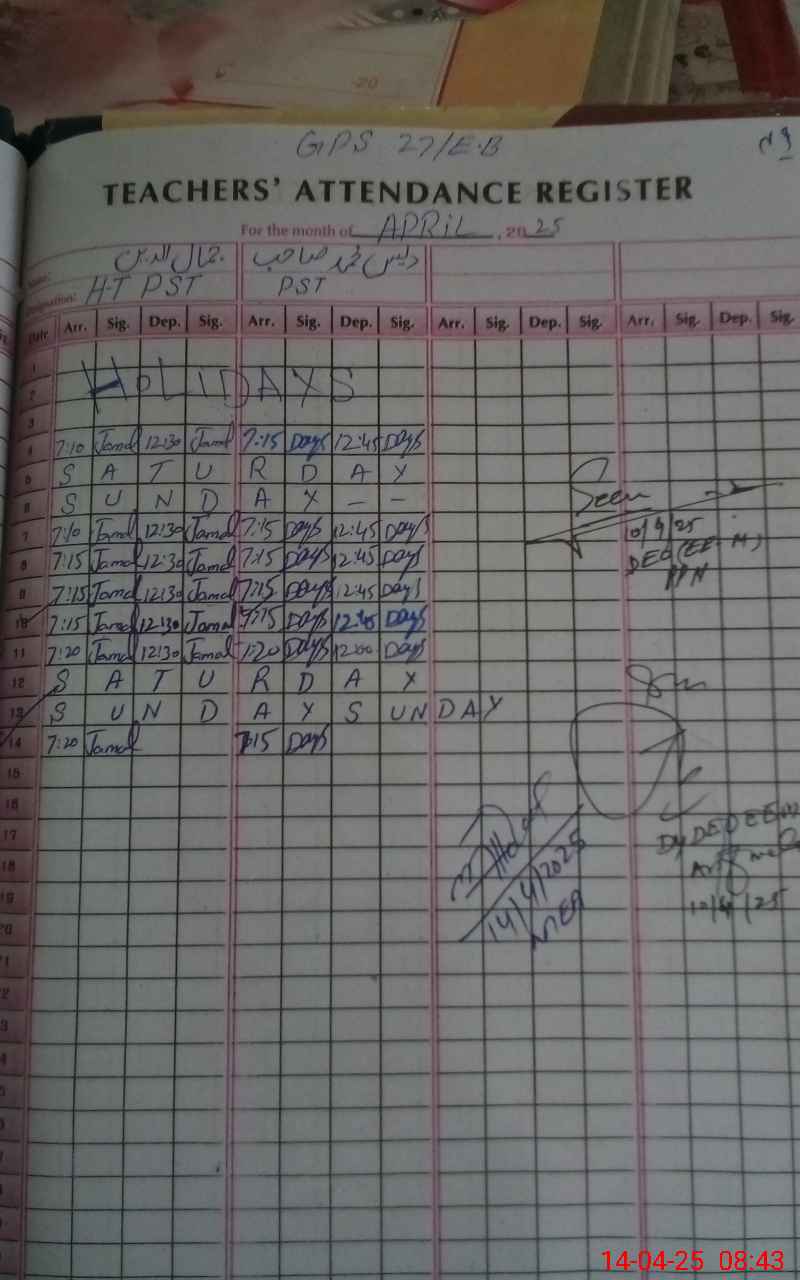 GPS 27/E.B
TEACHERS' ATTENDANCE REGISTER
For the month of APRIL, 2025
جمال الدین
Designation: H.T PST PST
Date Arr. Sig. Dep. Sig. Arr. Sig. Dep. Sig. Arr. Sig. Dep. Sig. Arr. Sig. Dep. Sig.
1
2 HOLIDAYS
3
4 7:10 Jamal 12:30 Jamal 7:15 Days 12:45 Days
5 S A T U R D A Y
6 S U N D A Y – –
7 7:10 Jamal 12:30 Jamal 7:15 Days 12:45 Days
8 7:15 Jamal 12:30 Jamal 7:15 Days 12:45 Days
9 7:15 Jamal 12:30 Jamal 7:15 Days 12:45 Days
10 7:15 Jamal 12:30 Jamal 7:15 Days 12:45 Days
11 7:20 Jamal 12:30 Jamal 7:20 Days 12:00 Days
12 S A T U R D A Y
13 S U N D A Y S U N D A Y
14 7:20 Jamal 7:15 Days
15
16
17
18
19
20
Seen
10/4/25
DEO (EE-M)
PPN
14/4/2025
MEA
Dy DEO EE
10/4/25
14-04-25 08:43